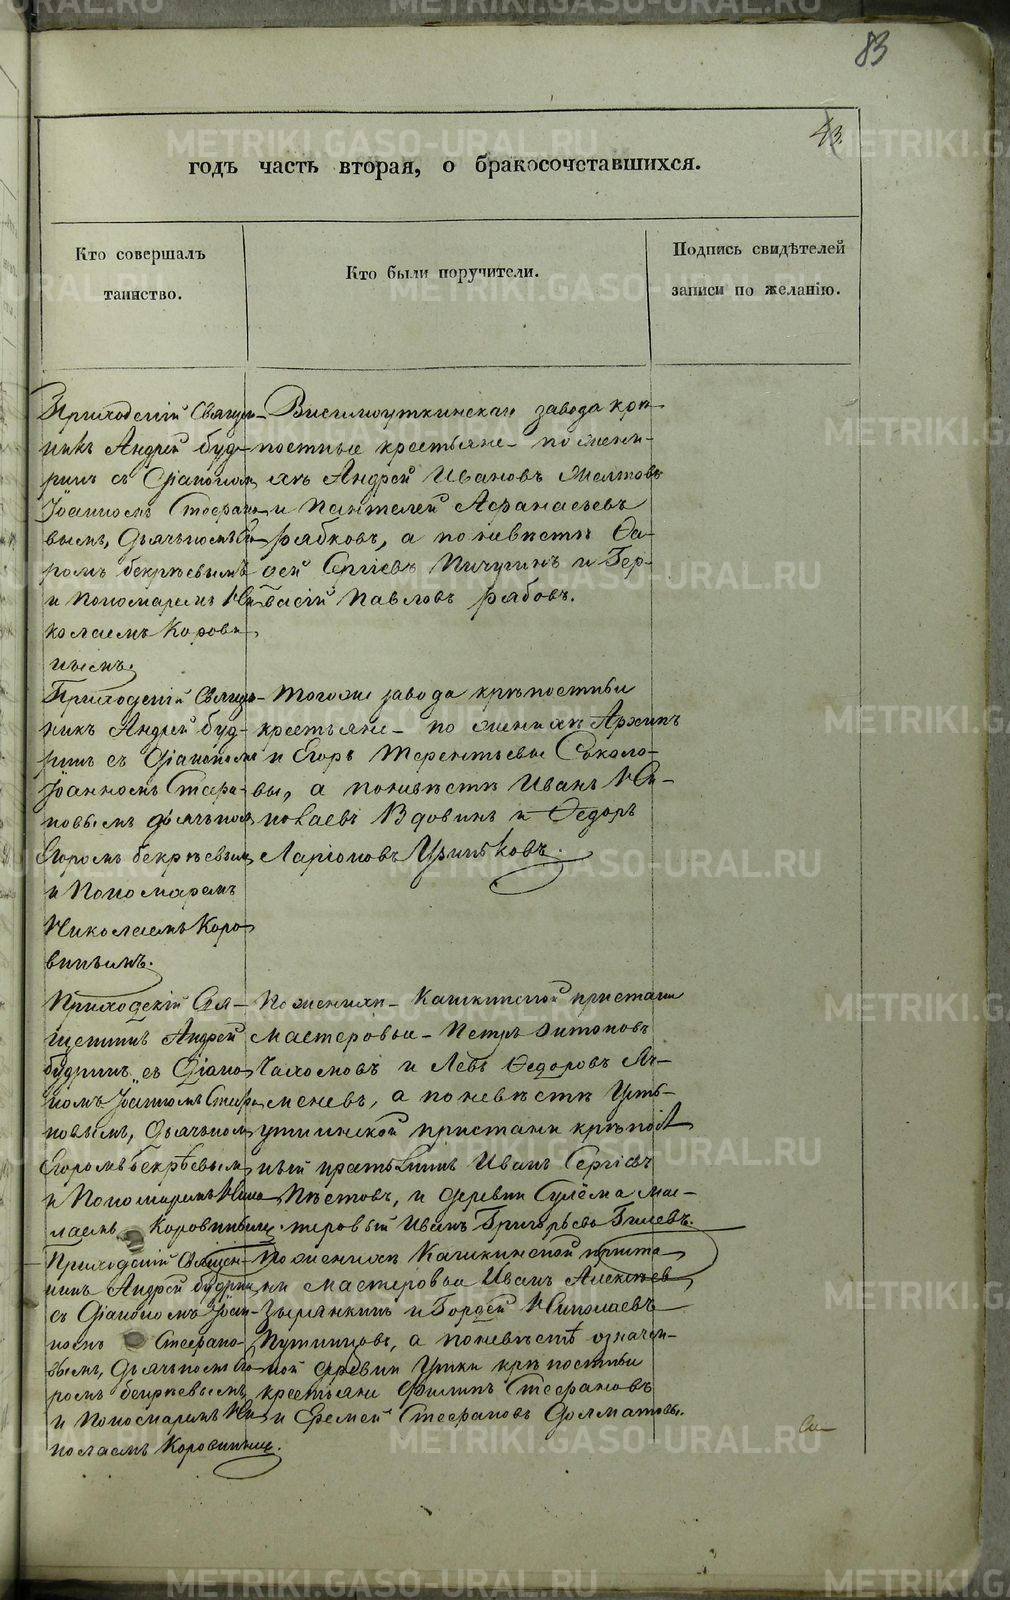 83
43.
годъ часть вторая, о бракосочетавшихся.
Кто совершалъ
таинство.
Кто были поручители.
Подпись свидѣтелей
записи по желанію.
Приходскій Священ-
никъ Андрей Буд-
ринъ съ Діакономъ
Іоанномъ Стефано-
вымъ, Дьячкомъ Его-
ромъ Бекрѣевымъ
и Пономаремъ Ни-
колаемъ Корови-
нымъ.
Висимоуткинскаго завода крѣ-
постные крестьяне по жени-
хѣ Андрей Ивановъ
и Пантелей Афанасьевъ
Рябковъ, а по невѣстѣ Фа-
дей Сергіевъ Пичугинъ и Гер-
васій Павловъ Рябовъ.
Приходскій Священ-
никъ Андрей Буд-
ринъ съ Діакономъ
Іоанномъ Стефа-
новымъ дьячкомъ
Егоромъ Бекрѣевымъ
и Пономаремъ
Николаемъ Коро-
винымъ.
Тогоже завода крѣпостные
крестьяне по женихѣ Архипъ
и Егоръ Терентьевы Соколо-
вы, а по невѣстѣ Иванъ Ни-
колаевъ Вдовинъ и Ѳедоръ
Ларіоновъ
Приходскій Свя-
щенникъ Андрей
Будринъ съ Діако-
номъ Іоанномъ Стефа-
новымъ, Дьячкомъ
Егоромъ Бекрѣевымъ
и Пономаремъ Нико-
лаемъ Коровинымъ.
По женихѣ Кашкинской пристани
мастеровые Петръ Антоновъ
и Левъ Ѳедоровъ Яч-
меневъ, а по невѣстѣ Усть-
уткинской пристани крѣпост
ный Иванъ Сергіевъ
Пѣстовъ, и деревни Сулёма мас-
теровый Иванъ Григорьевъ Гилевъ.
Приходскій Священ-
никъ Андрей Будринъ
съ Діакономъ Іоан-
номъ Стефано-
вымъ, Дьячкомъ Его-
ромъ Бекрѣевымъ
и Пономаремъ Ни-
колаемъ Коровинымъ.
По женихѣ Кашкинской приста
ни мастеровые Иванъ Алексѣевъ
Зырянкинъ и Гордей Николаевъ
Путинцовъ, а по невѣстѣ означен-
ной деревни Утки крѣпостные
крестьяне Филипъ Стефановъ
и Еремей Стефановъ Долматовы.
METRIKI.GASO-URAL.RU